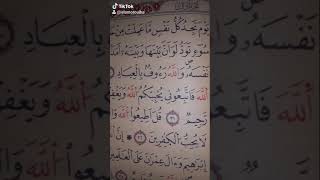 TikTok
يَوْمَ تَجِدُ كُلُّ نَفْسٍ مَّا عَمِلَتْ مِنْ
سُوٓءٍ تَوَدُّ لَوْ أَنَّ بَيْنَهَا وَبَيْنَهُۥٓ أَمَدًۢا
نَفْسَهُۥ وَٱللَّهُ رَءُوفٌۢ بِٱلْعِبَادِ
ٱللَّهَ فَٱتَّبِعُونِى يُحْبِبْكُمُ ٱللَّهُ وَيَغْفِرْ
رَّحِيمٌ ٣١ قُلْ أَطِيعُوا۟ ٱللَّهَ
لَا يُحِبُّ ٱلْكَٰفِرِينَ ٣٢ إِنَّ
إِبْرَٰهِيمَ وَءَالَ عِمْرَٰنَ عَلَى ٱلْعَٰلَمِينَ